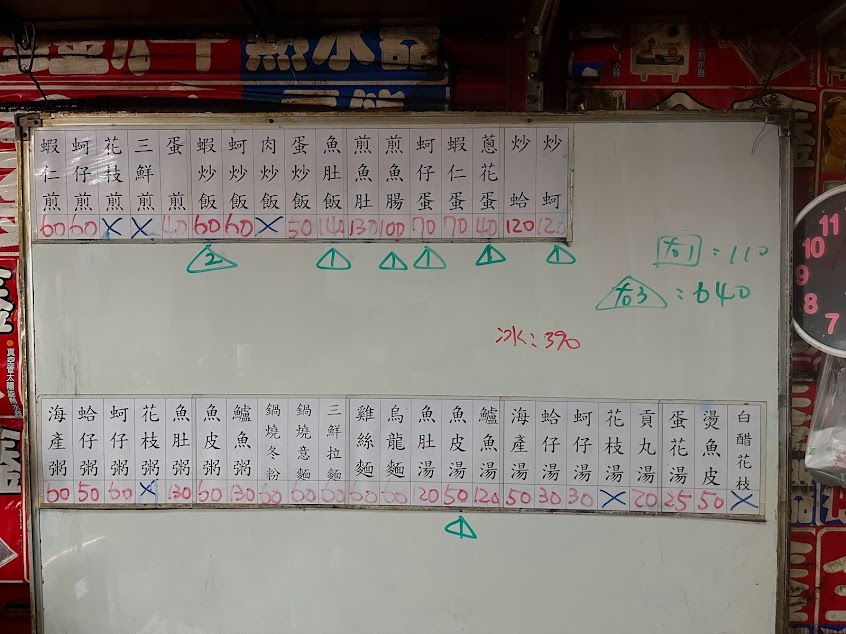 熱水器
蝦仁煎 蚵仔煎 花枝煎 三鮮煎 蛋煎 蝦炒飯 蚵炒飯 肉炒飯 蛋炒飯 魚肚飯 煎魚肚 煎魚腸 蚵仔蛋 蝦仁蛋 蔥花蛋 炒蛤 炒蚵
60 60 X X 40 60 60 X 50 140 130 100 70 70 40 120 120
2 1 1 1 1 1
右1:110
右3:640
冰:390
海產粥 蛤仔粥 蚵仔粥 花枝粥 魚肚粥 魚皮粥 鱸魚粥 鍋燒冬粉 鍋燒意麵 三鮮拉麵 雞絲麵 烏龍麵 魚肚湯 魚皮湯 鱸魚湯 海產湯 蛤仔湯 蚵仔湯 花枝湯 貢丸湯 蛋花湯 燙魚皮 白醋花枝
60 50 60 X 130 60 130 60 60 60 60 60 120 50 120 50 30 30 X 20 25 50 X
1
11
10
9
8
7
真空管太陽能